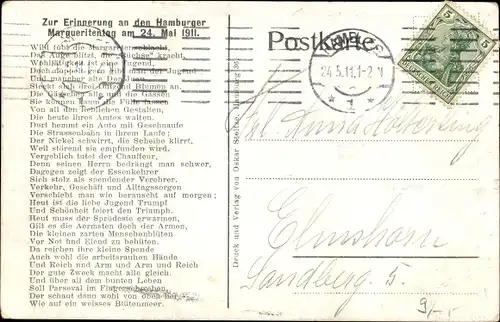 Zur Erinnerung an den Hamburger
Margueritentag am 24. Mai 1911.
Wild tobt die
Das Auge blitzt, die „Büchse“ kracht,
Wohltätigkeit ist eine Tugend,
Doch doppelt gern gibt man der Jugend
Und mancher alte Der Jugend
Steckt sich drei Dutzend Blumen an
Die Gesichter alle und die Gassen
Sie können kaum die Fülle fassen
Von all den herrlichen Gestalten,
Die heute ihres Amtes walten.
Dort hemmt ein Auto mit Geschnaufe
Die Strassenbahn in ihrem Laufe;
Der Nickel schwirrt, die Scheibe klirrt.
Weil störend sie empfunden wird.
Vergeblich tutet der Chauffeur,
Denn seinen Herrn bedrängt man schwer,
Dagegen zeigt der Essenkehrer
Sich stolz als spendender Verehrer.
Verkehr, Geschäft und Alltagssorgen
Verschiebt man wie berauscht auf morgen;
Heut ist die liebe Jugend Trumpf
Und Schönheit feiert den Triumph.
Heut muss der Sprödeste erwarmen,
Gilt es die Aermsten doch der Armen,
Die kleinen zarten Menschenblüten
Vor Not und Elend zu behüten.
Da reichen ihre kleine Spende
Auch wohl die arbeitsrauhen Hände
Und Reich und Arm und Arm und Reich
Der gute Zweck macht alle gleich.
Und über all dem bunten Leben
Soll Parseval im Fluge schweben,
Der schaut dann wohl von oben her
Wie auf ein weisses Blütenmeer.
Druck und Verlag von Oskar Stoltze, Hamburg 36.
Postkarte
24.5.11.1-2 N
1
5
5
Elmshorn
Sandberg 5.
9,-